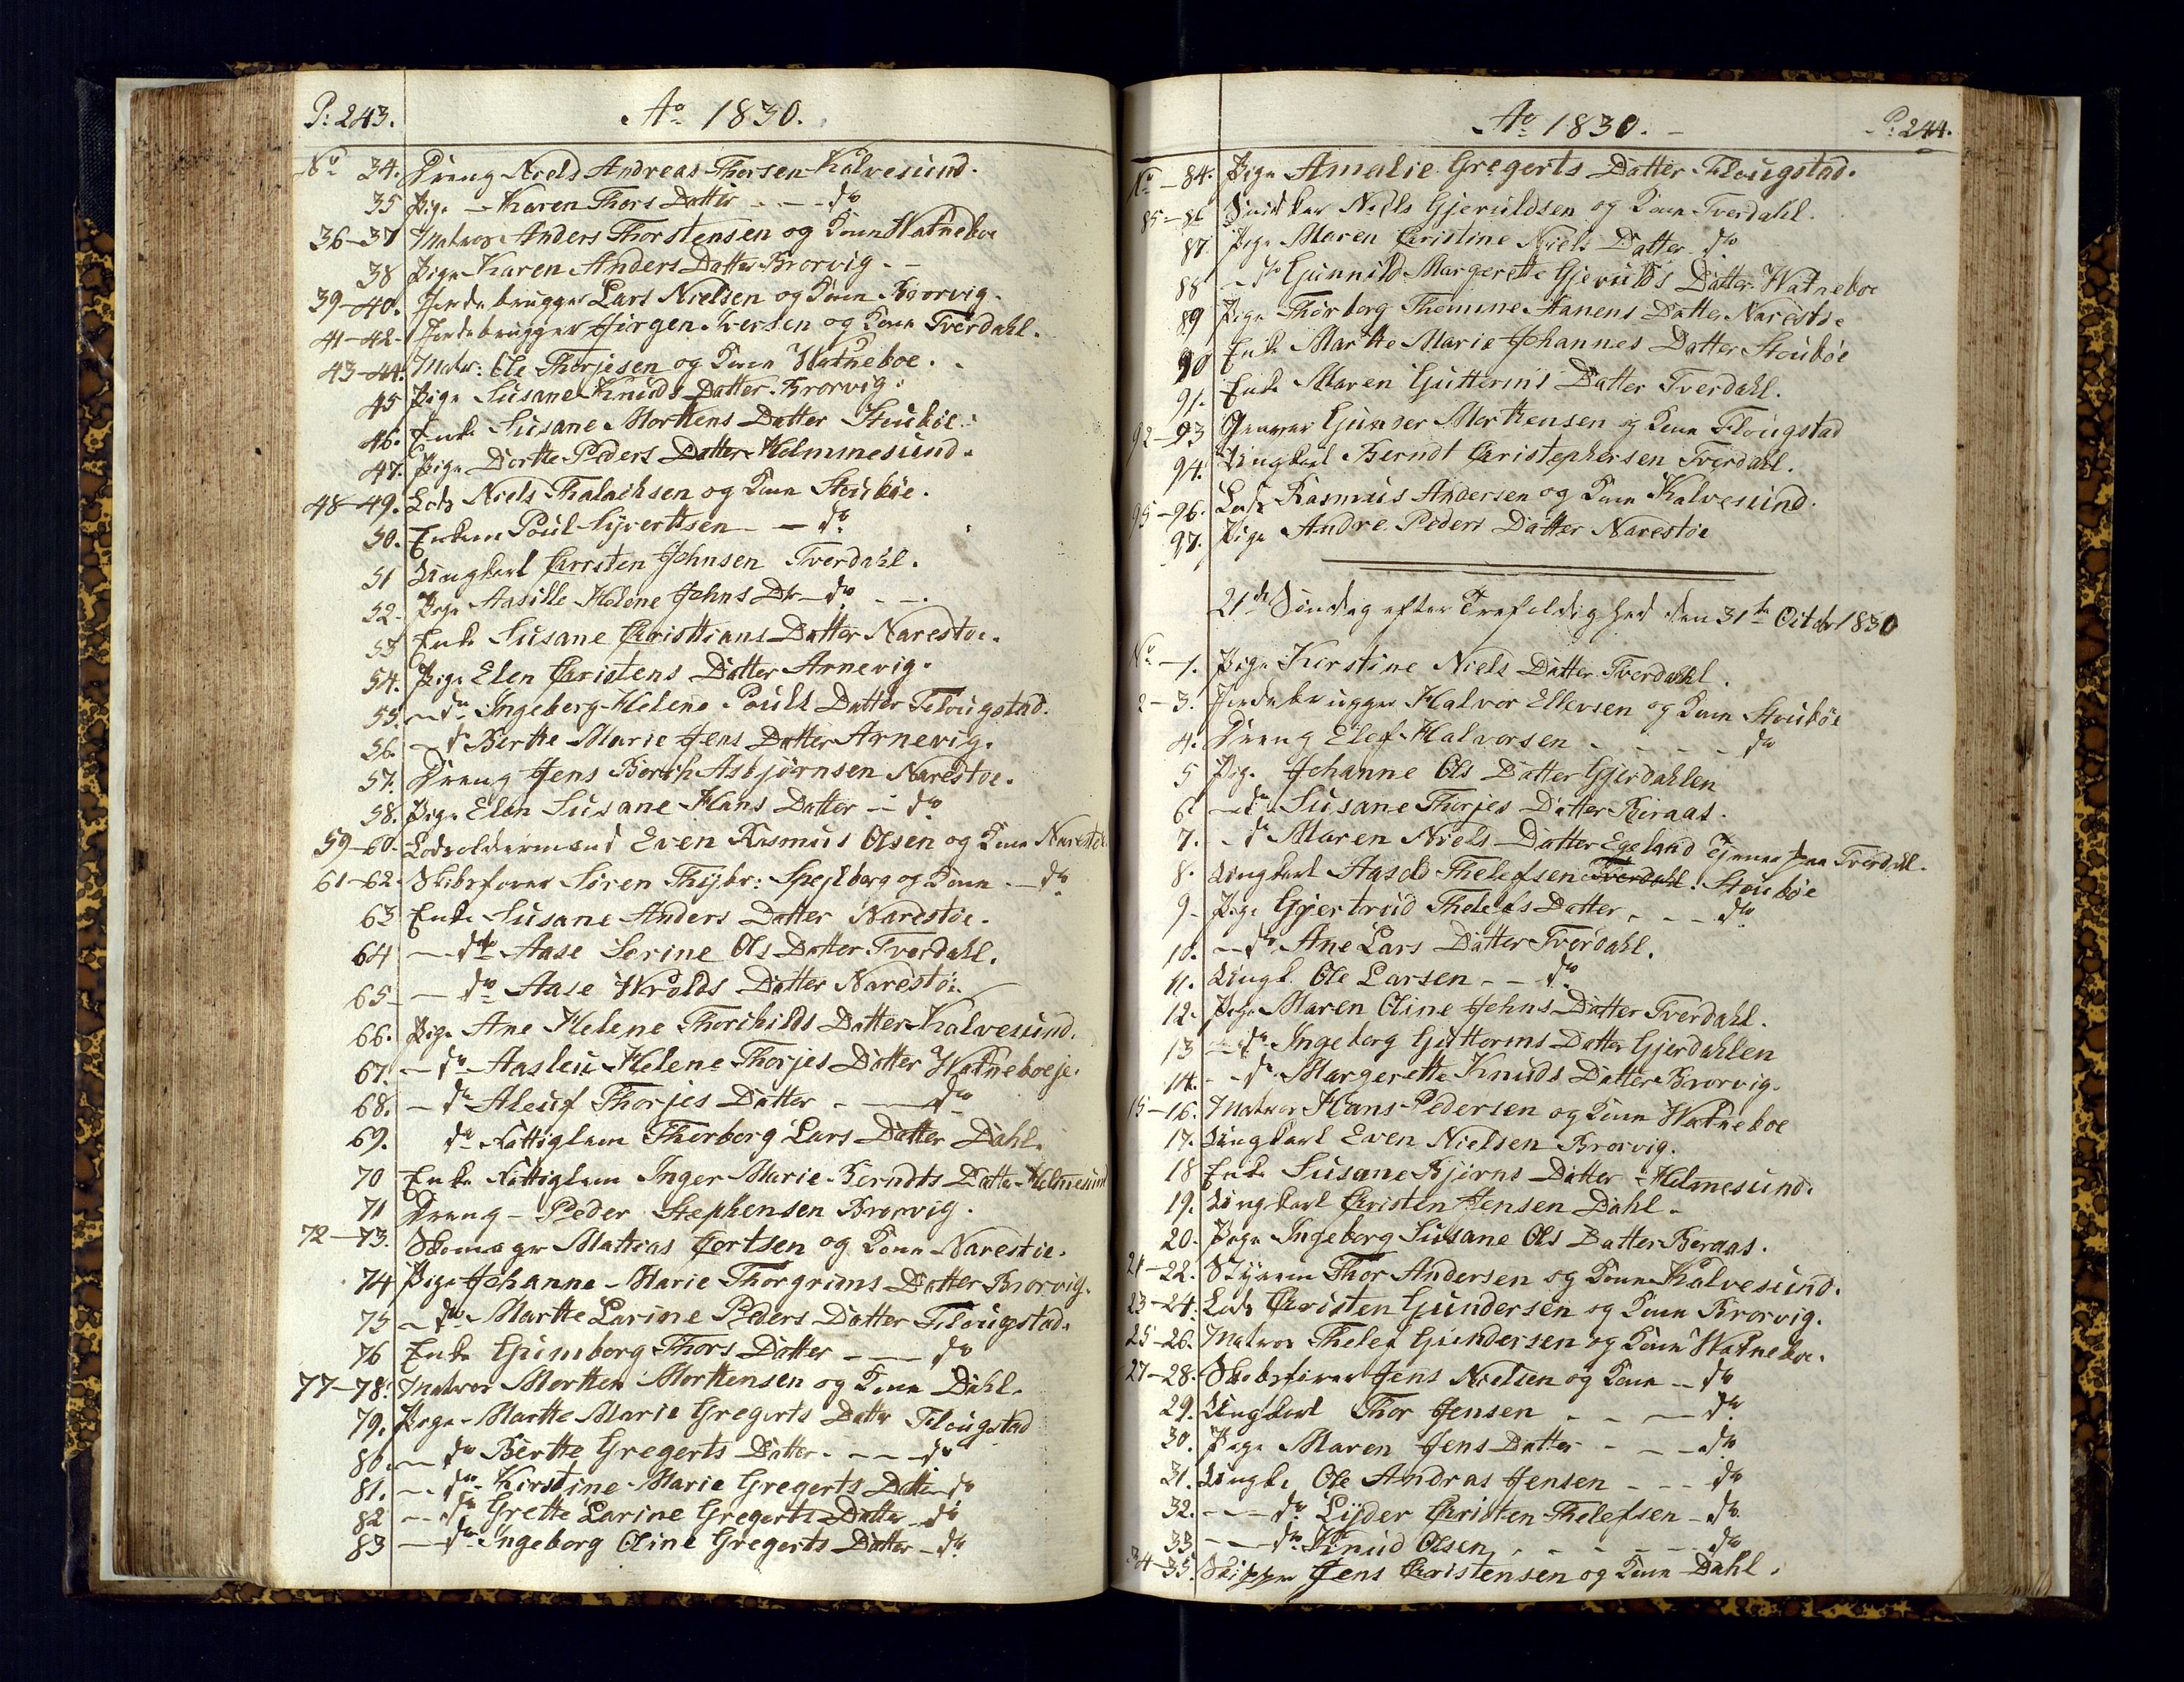 P: 243.
Ao 1830.
No 34. Dreng Niels Andreas Thorsen Kalvesund.
35 Pige - Karen Thors Datter - - - do
36-37 Matros Anders Thorstensen og Kone Watneboe
38 Pige Karen Anders Datter Brorvig. -
39-40. Jordebrugger Lars Nielsen og Kone Brorvig.
41-42- Jordebrugger Jörgen Iversen og Kone Tverdahl.
43-44. Matr: Ole Thorjesen og Kone Watneboe.
45 Pige Susane Knuds Datter Brorvig.
46. Enke Susane Morttens Datter Stouböe.
47. Pige Dortte Peders Datter Helmmesund.
48-49. Lods Niels Thalachsen og Kone Stouböe.
50. Enkem Poul Syverttsen - - do
51 Ungkarl Christen Johnsen Tverdahl.
52. Pige Aasille Helene Johns Dtr - do - -
53 Enke Susane Christtians Datter Narestoe.
54. Pige Elen Christens Datter Arnevig.
55. - do Ingeborg Helene Pouls Datter Flougstad.
56. - do Bertte Marie Jens Datter Arnevig.
57. Dreng Jens Borth Asbjørnsen Narestoe.
58. Pige Elen Susane Hans Datter - do
59-60. Lodsoldermand Even Rasmus Olsen og Kone Narestöe
61-62. Skibsfører Søren Thybr: Spejlberg og Kone - do
63 Enke Susane Anders Datter Narestöe.
64 - do Aase Serine Ols Datter Tverdahl.
65- - do Aase Wrolds Datter Narestöe
66. Pige Ane Helene Thorkilds Datter Kalvesund.
67. - do Aasleu Helene Thorjes Datter Watneboeje.
68. - do Aleuf Thorjes Datter - - do
69. do Fattiglem Thorborg Lars Datter Dahl.
70 Enke Fattiglem Inger Marie Berndts Datter Helmesund
71 Dreng - Peder Stephensen Brorvig.
72-73. Skomager Mattias Cortsen og Kone Narestöe.
74 Pige Johanne Marie Thorgrims Datter Brorvig.
75 - do Martte Larine Peders Datter Flougstad.
76 Enke Gunnborg Thors Datter - - do
77-78. Matros Mortten Morttensen og Kone Dahl.
79. Pige - Martte Marie Gregerts Datter Flougstad
80. - do Bertte Gregerts Datter - - - do
81. - do Kirstine Marie Gregerts Datter do
82 - do Grette Larine Gregerts Datter do
83 - do Ingeborg Oline Gregerts Datter - do
Ao 1830. -
P: 244.
No - 84. Pige Amalie Gregerts Datter Flougstad.
85-86 Snidker Niels Gjeruldsen og Kone Tverdahl.
87. Pige Maren Christine Niels Datter do
88 - do Gunnild Margrette Gjerulds Datter Watneboe
89 Pige Thorborg Thomine Hanens Datter Narestöe
90 Enke Martte Marie Johannes Datter Stouböe
91. Enke Maren Gutterms Datter Tverdahl.
92-93 Gunner Morttensen og Kone Flougstad
94. Ungkarl Berndt Christophersen Tverdahl.
95-96. Lods Rasmus Andersen og Kone Kalvesund.
97. Pige Andre Peders Datter Narestöe
21de Søndag efter Trefoldighed den 31te Octobr 1830
No - 1. Pige Kirstine Niels Datter Tverdahl.
2-3. Jordebrugger Halvor Ellevsen og Kone Stouböe
4. Dreng Elef Halvorsen - - - - do
5 Pige Johanne Ols Datter Gjerdahlen
6 - do Susane Thorjes Datter Beraas.
7. - do Maren Niels Datter Egeland Tjener paa Tverdahl.
8. Ungkarl Aasold Thelefsen Tverdahl. Stouböe
9- Pige Gjertrud Thelefs Datter - - - do
10. - do Ane Lars Datter Tverdahl.
11. Ungk. Ole Larsen - - do
12. Pige Maren Oline Johns Datter Tverdahl.
13 - do Ingeborg Guttorms Datter Gjerdahlen
14. - do Margerette Knuds Datter Brorvig.
15-16. Matros Hans Pedersen og Kone Watneboe
17. Ungkarl Even Nielsen Brorvig.
18 Enke Susane Bjørns Datter Helmesund.
19. Ungkarl Christen Jensen Dahl.
20. Pige Ingeborg Susane Ols Datter Beraas.
21-22. Styrm Thor Andersen og Kone Kalvesund.
23-24. Lods Christen Gundersen og Kone Brorvig.
25-26. Matros Thelef Gundersen og Kone Watneboe.
27-28. Skibsfører Jens Nielsen og Kone - do
29. Ungkarl Thor Jensen - - - do
30. Pige Maren Jens Datter - - - do
31. Ungk. Ole Andras Jensen - - - do
32. - - do Lyder Christen Thelefsen - do
33 - - do Knud Olsen - - - - do
34-35. Skipper Jens Christensen og Kone Dahl.